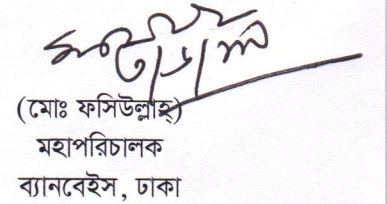 (মোঃ ফসিউল্লাহ্)
মহাপরিচালক
ব্যানবেইস, ঢাকা